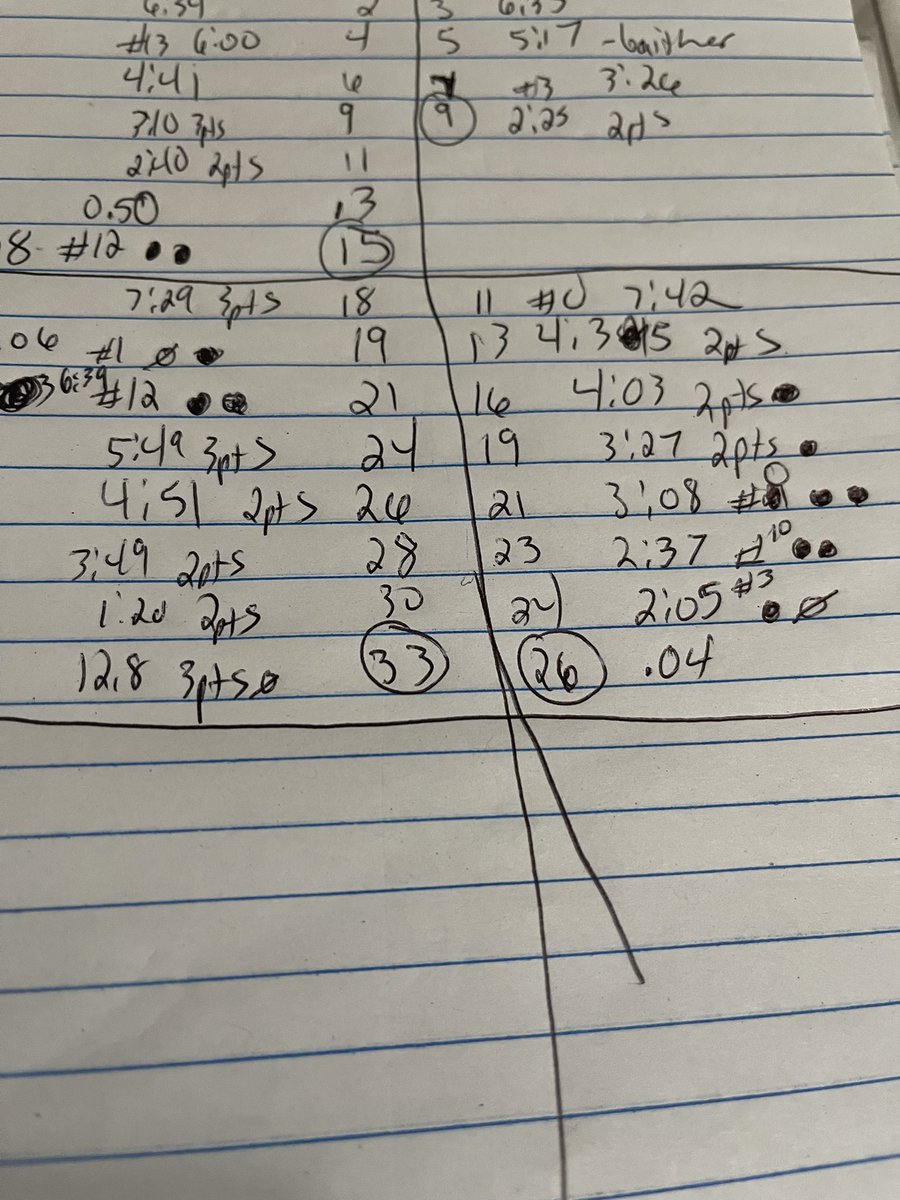 6:39 2 3 6:35
#13 6:00 4 5 5:17 -baither
4:41 6 7 #3 3:26
3:10 3pts 9 9 2:25 2pts
2:40 2pts 11
0.50 13
8 #12 15
7:29 3pts 18 11 #0 7:42
06 #1 19 13 4:3 15 2pts
3 6:39 #12 21 16 4:03 2pts
5:49 3pts 24 19 3:27 2pts
4:51 2pts 26 21 3:08 #0
3:49 2pts 28 23 2:37 #10
1:20 2pts 30 24 2:05 #3
12.8 3pts 33 26 .04